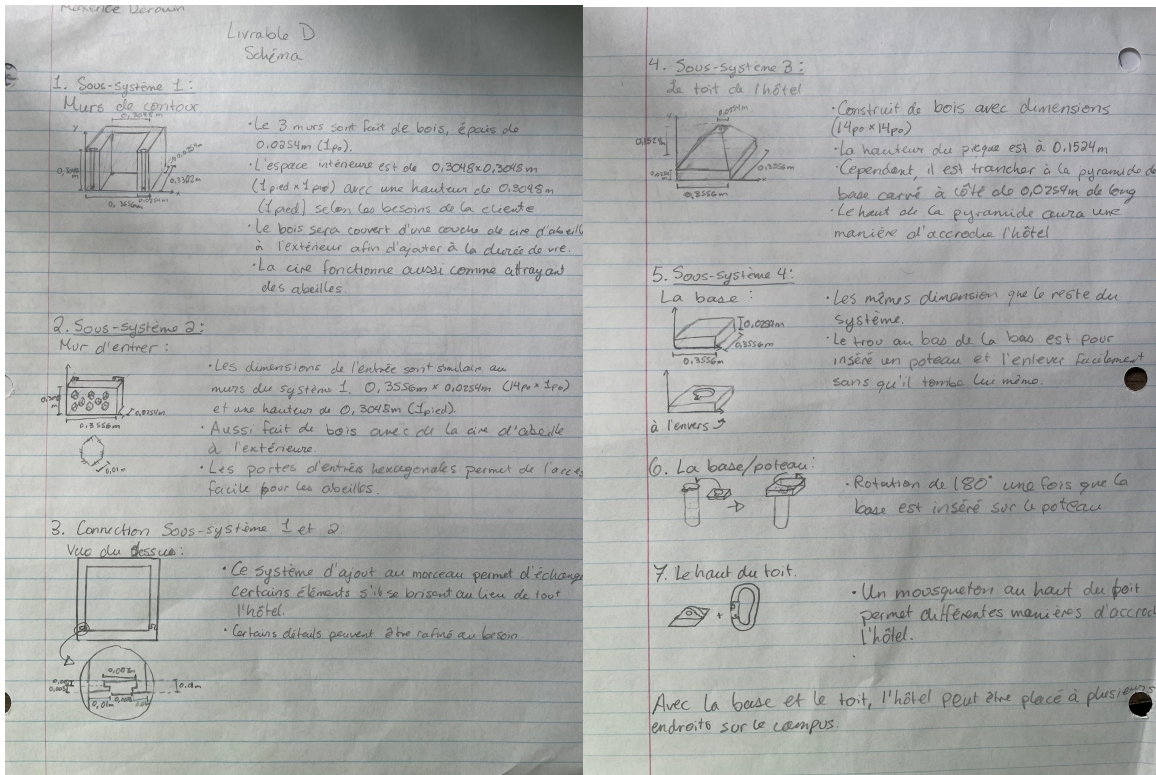 Livrable D
Schéma
1. Sous-système 1:
Murs de contour
0,3048m
0,0254m
0,3302m
0,3556m
0,0254m
• Le 3 murs sont fait de bois, épais de
0,0254m (1po).
• L'espace intérieure est de 0,3048x0,3048m
(1pied x 1pied) avec une hauteur de 0,3048m
(1pied) selon les besoins de la cliente
• Le bois sera couvert d'une couche de cire d'abeill
à l'extérieur afin d'ajouter à la durée de vie.
• La cire fonctionne aussi comme attrayant
des abeilles
2. Sous-système 2:
Mur d'entrer:
0,3556m
0,0254m
0,01m
• Les dimensions de l'entrée sont similair au
murs du système 1. 0,3556m x 0,0254m (14po x 1po)
et une hauteur de 0,3048m (1pied).
• Aussi fait de bois avec de la cire d'abeille
à l'extérieure.
• Les portes d'entrées hexagonales permet de l'acce
facile pour les abeilles.
3. Connection Sous-système 1 et 2:
Vue du dessus:
• Ce système d'ajout au morceau permet d'échange
certains éléments s'ils se brisent au lieu de tout
l'hôtel.
• Certains détails peuvent être rafiné au besoin
0,01m
0,01m
4. Sous-système 3:
Le toit de l'hôtel
0,0254m
0,1524m
0,3556m
0,3556m
• Construit de bois avec dimensions
(14po x 14po)
• La hauteur du pique est à 0,1524m
• Cependent, il est trancher à la pyramide de
base carvé à côté de 0,0254m de long
• Le haut de la pyramide aura une
manière d'accroche l'hôtel
5. Sous-système 4:
La base:
0,0254m
0,3556m
0,3556m
à l'envers
• Les mêmes dimension que le reste du
système.
• Le trou au bas de la bas est pour
inséré un poteau et l'enlever facilement
sans qu'il tombe lui même.
6. La base/poteau:
• Rotation de 180° une fois que la
base est inséré sur le poteau
7. Le haut du toit.
+
• Un mousqueton au haut du toit
permet différentes manières d'accroc
l'hôtel.
Avec la base et le toit, l'hôtel peut être placé à plusieurs
endroits sur le campus.